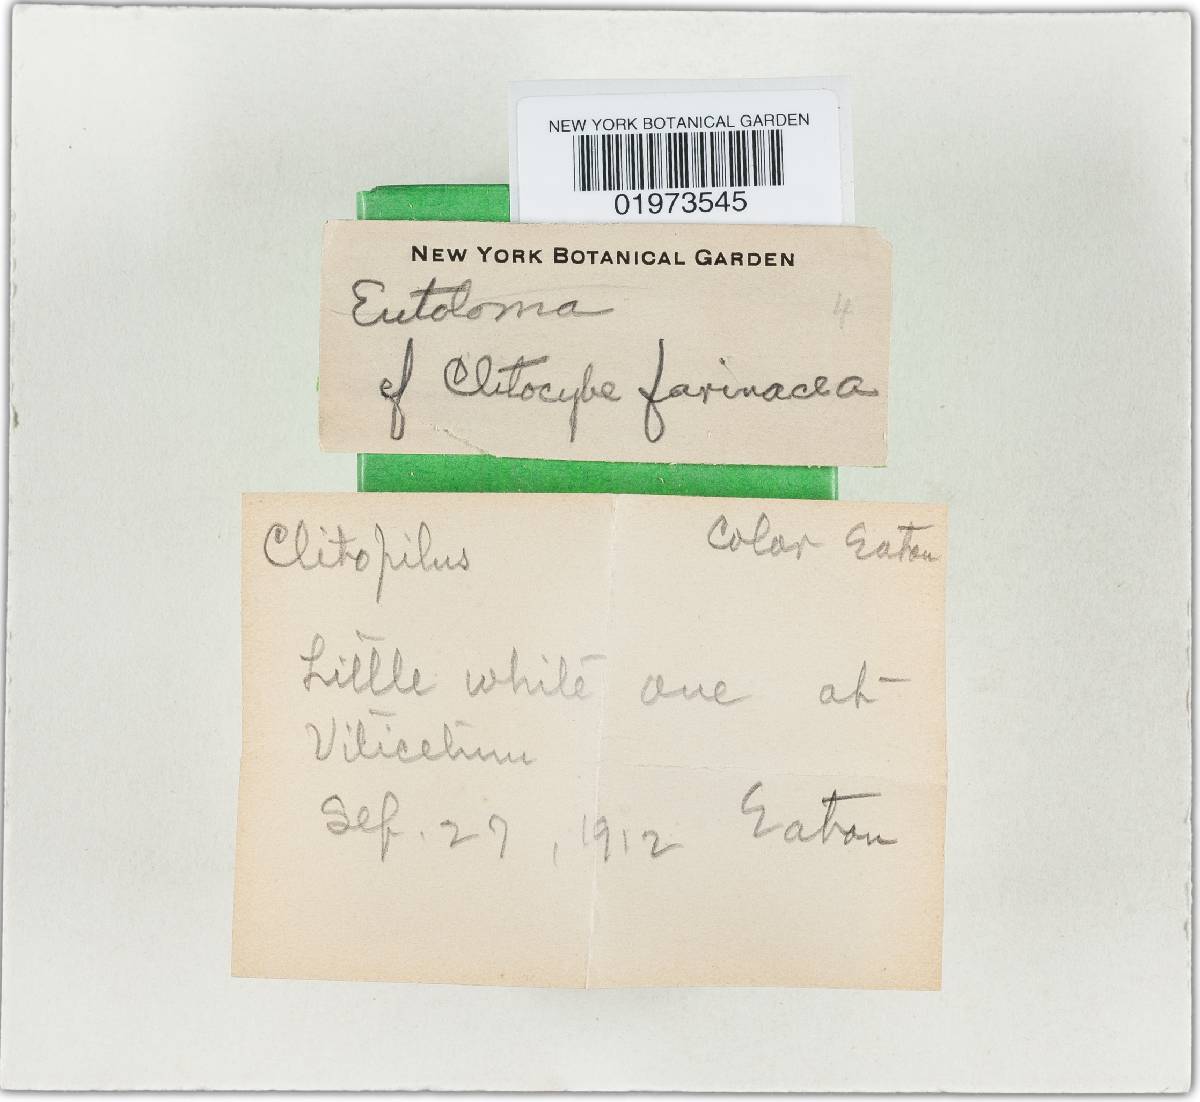 NEW YORK BOTANICAL GARDEN
01973545
NEW YORK BOTANICAL GARDEN
Entoloma 4
cf Clitocybe farinacea
Clitopilus Color Eaton
Little white one at
Viticetum
Sep. 27, 1912 Eaton